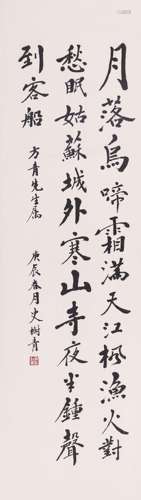 月落烏啼霜滿天江楓漁火對
愁眠姑蘇城外寒山寺夜半鍾聲
到客船
方青先生屬
庚辰春月史樹青